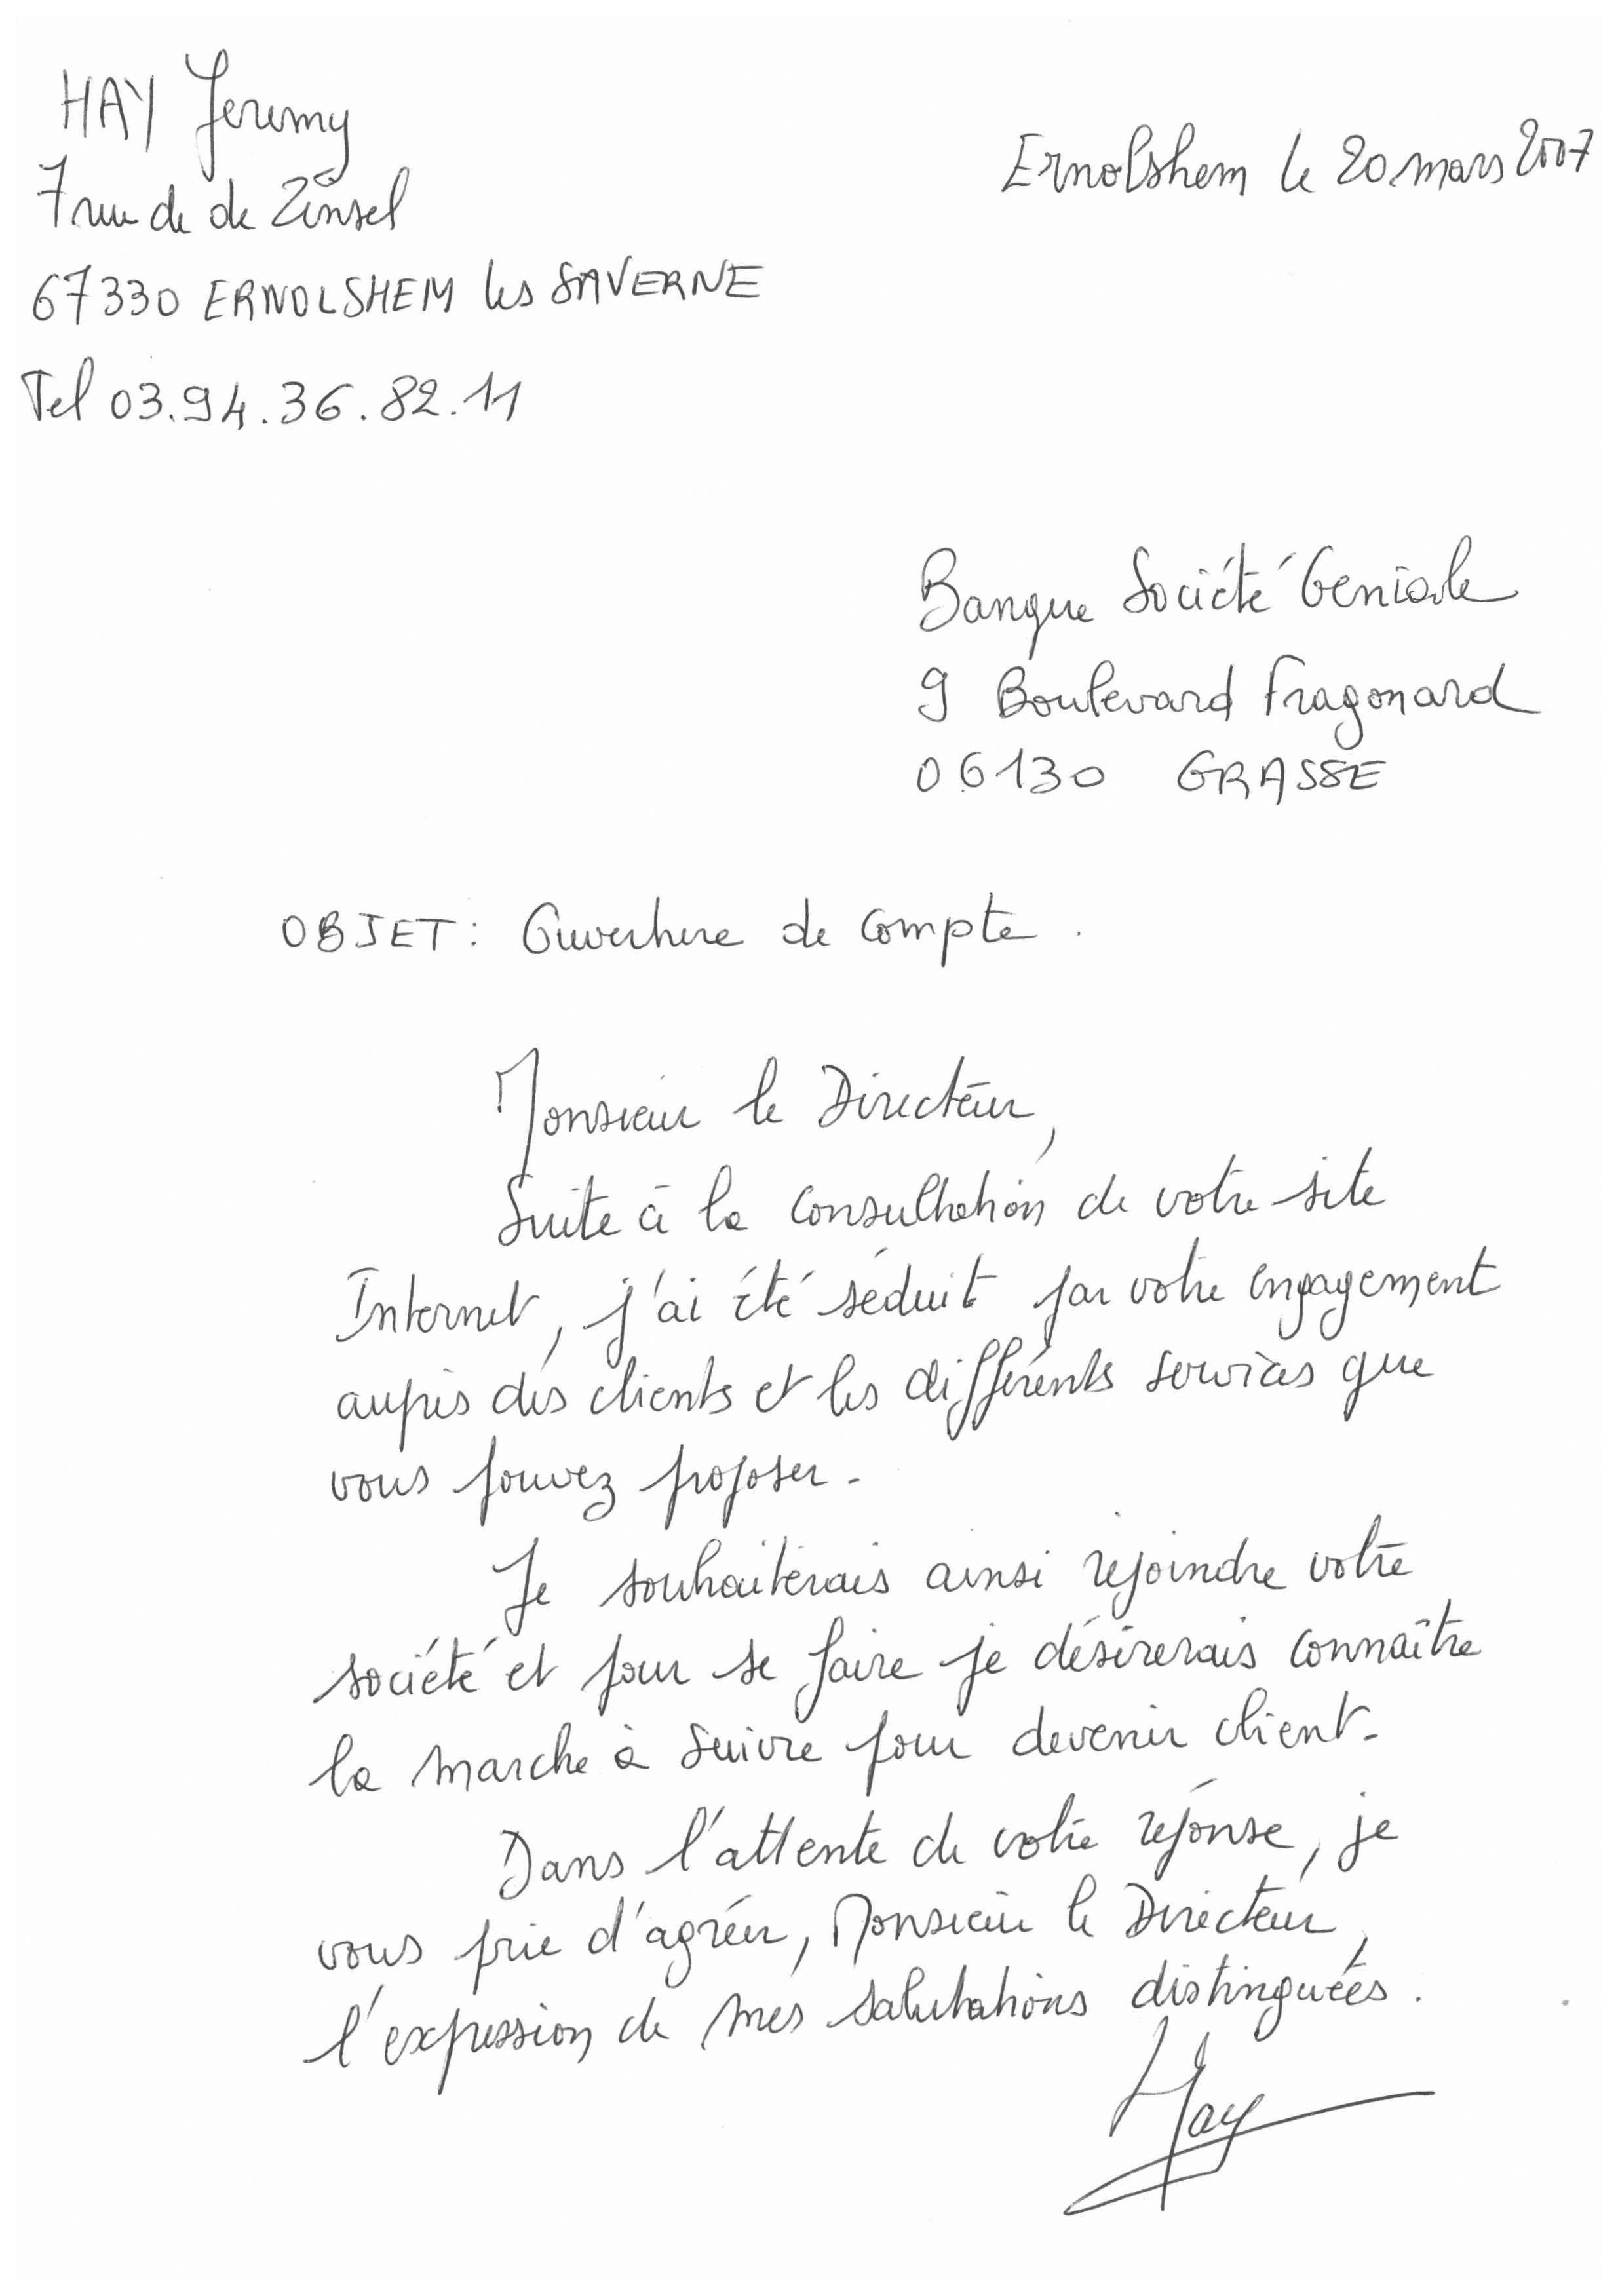 HAY Jeremy
7 rue de de Zinsel
67330 ERNOLSHEM les SAVERNE
Tel 03.94.36.82.11
Ernolshem le 20 mars 2007
Banque Société Geniale
9 Boulevard Fragonard
06130 GRASSE
OBJET : Ouverture de compte.
Monsieur le Directeur,
Suite à la consultation de votre site
Internet, j'ai été séduit par votre engagement
auprès des clients et les différents services que
vous pouvez proposer.
Je souhaiterais ainsi rejoindre votre
société et pour se faire je désirerais connaître
la marche à suivre pour devenir client.
Dans l'attente de votre réponse, je
vous prie d'agréer, Monsieur le Directeur,
l'expression de mes salutations distinguées.
Hay